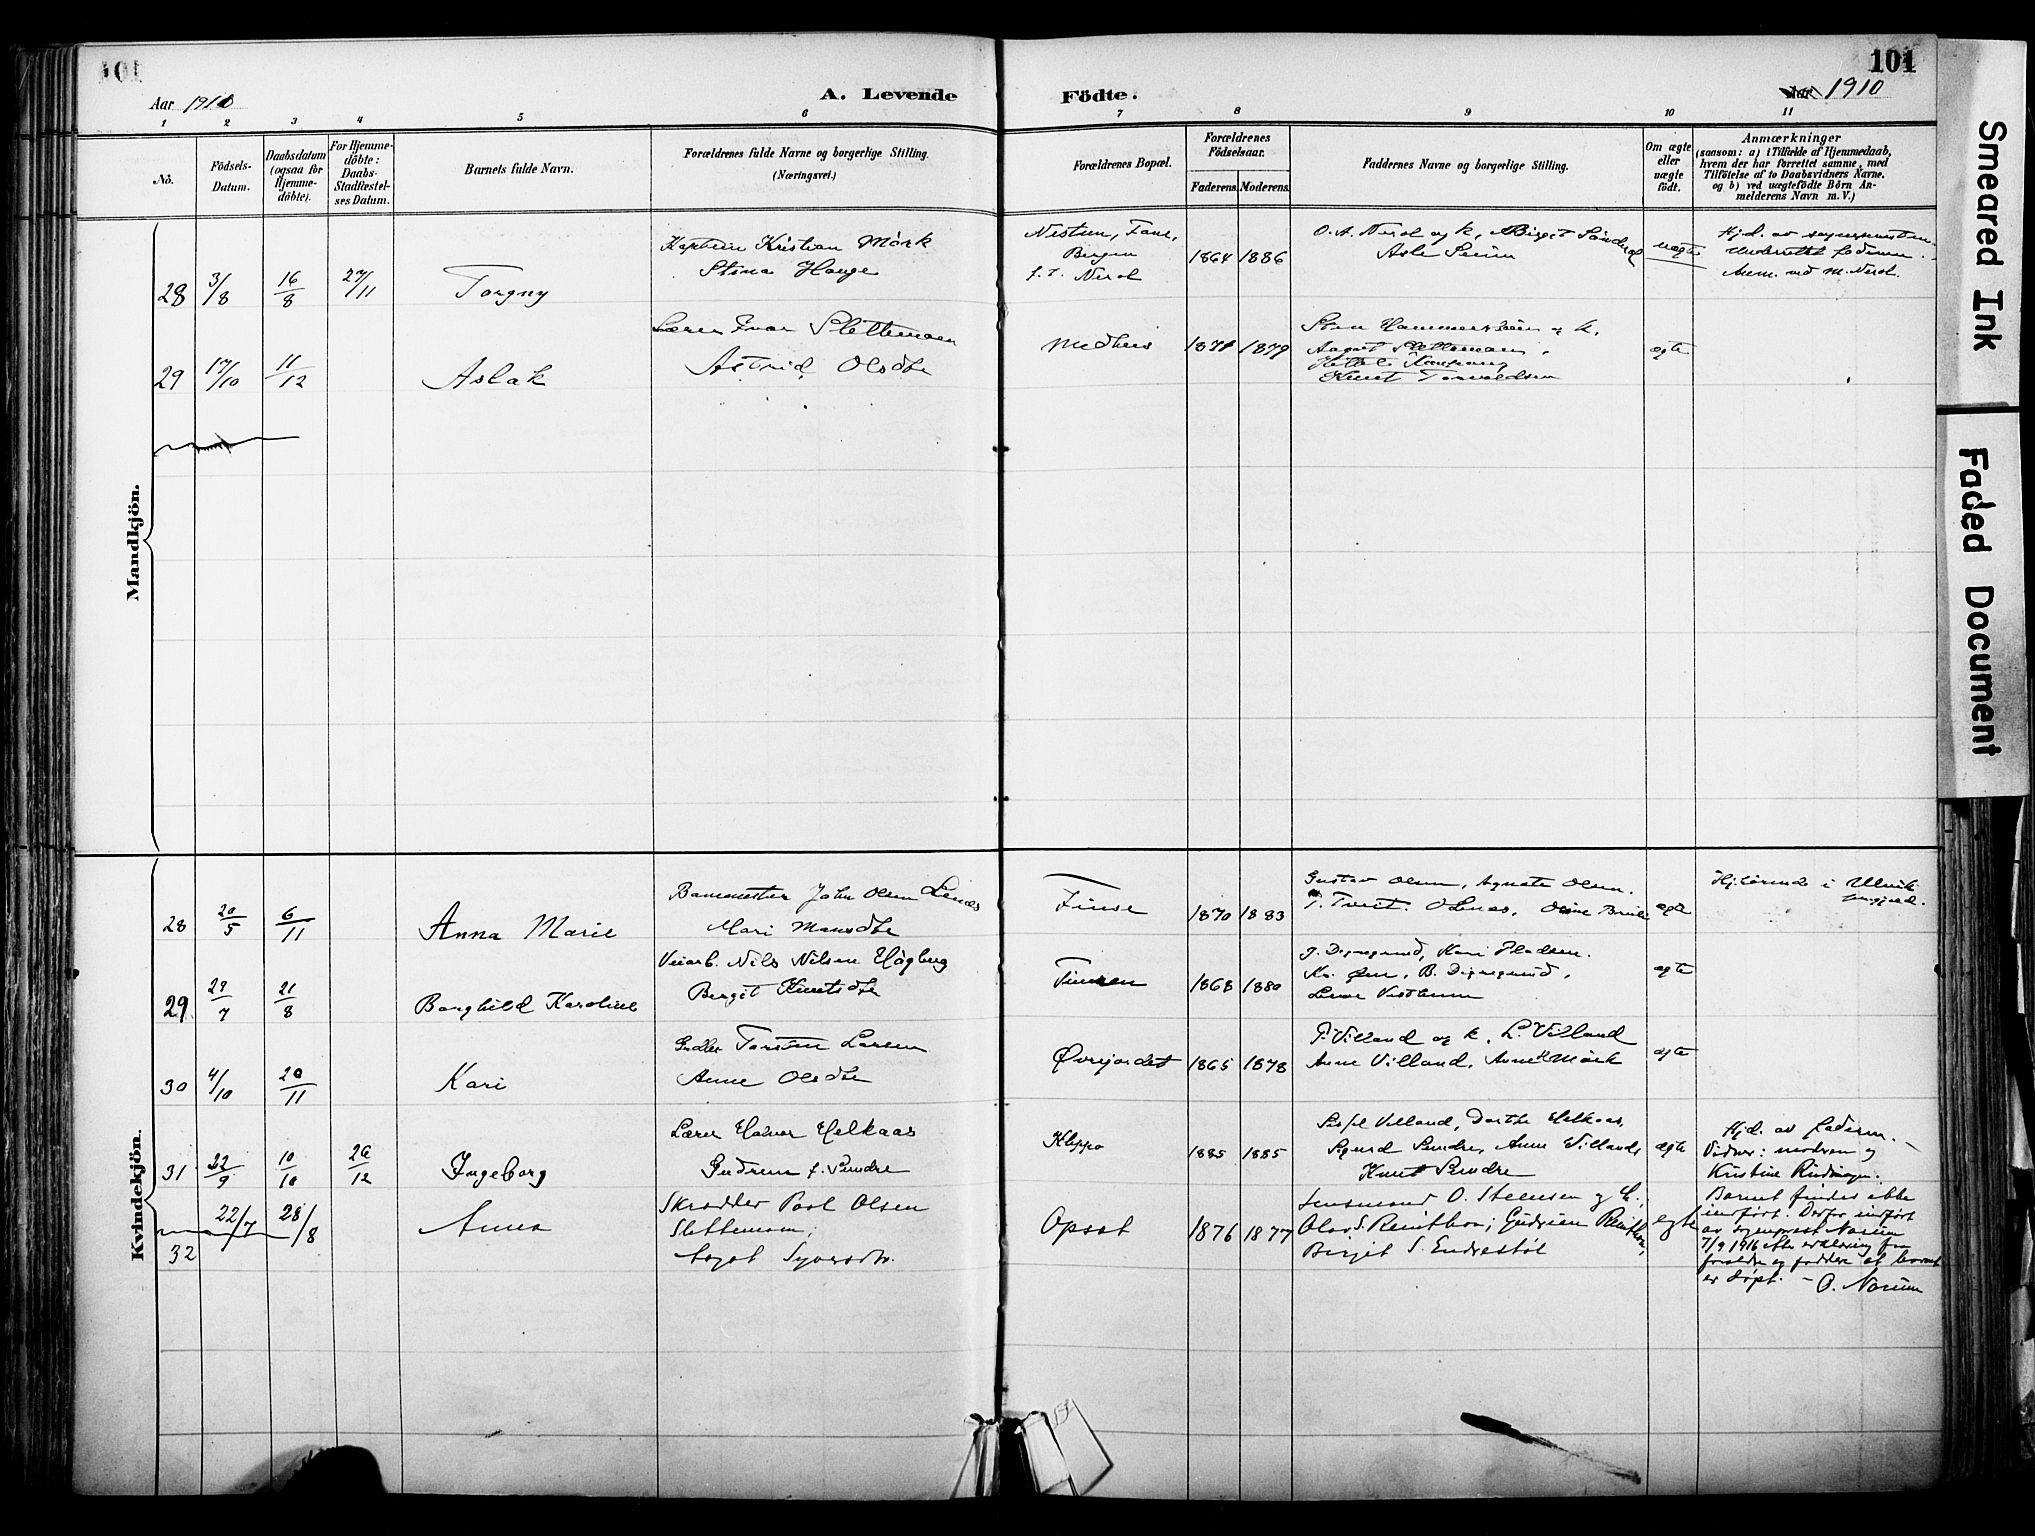 101
101
Aar 1910
A. Levende
Födte.
1910
1 2 3 4 5 6 7 8 9 10 11
No.
Födsels-
Datum.
Daabsdatum
(ogsaa for
Hjemme-
döbte).
For Hjemme-
döbte:
Daabs-
Stadfæstel-
ses Datum.
Barnets fulde Navn.
Forældrenes fulde Navne og borgerlige Stilling.
(Næringsvei.)
Forældrenes Bopæl.
Forældrenes
Födselsaar.
Faderens. Moderens.
Faddernes Navne og borgerlige Stilling.
Om ægte
eller
uægte
födt.
Anmærkninger
(saasom: a) i Tilfælde af Hjemmedaab,
hvem der har forrettet samme, med
Tilföielse af to Daabsvidners Navne,
og b) ved uægtefödte Börn An-
melderens Navn m. V.)
Mandkjön.
28 3/8 16/8 27/11 Torgny
Kaptein Kristian Mörk
Stina Hauge
Nestun, Fane,
Bergen
f. t. Nerol
1864 1886
O. A. Nerol og k, Birgit Sönderol
Asle Seim
uægte
Hjd. av
Underrettet faderen.
Anm. ved M. Nerol.
29 17/10 11/12 Aslak
Lærer Ivar Slettemoen
Astrid Olsdtr
Medhus
1871 1879
Sven Hammersbøen og k.
Aagot Slettemoen,
Knut Torvaldsen
ægte
Kvindekjön.
28 20/5 6/11 Anna Marie
Banemester John Olsen Lenæs
Mari Monsdtr
Finse
1870 1883
Gustav Olsen, Agnete Olsen.
T. Tveit. O Lenæs,
ægte
Hjhörende i Ulvik
29 29/7 21/8 Borghild Karoline
Veiarb. Nils Nilsen Högberg
Bergit Knutsdtr
1868 1880
J. Dyregrund, Kari
B. Dyregrund,
ægte
30 4/10 20/11 Kari
Torsten Larsen
Anne Olsdtr
Øvrejordet
1865 1878
T. Villand og k, L. Villand
Anne Villand, Mörk
ægte
31 22/9 10/10 26/12 Ingeborg
Lærer Halvor Helkaas
Gudrun f. Sundre
Kleppo
1885 1885
Villand, Dorthe Helkaas,
Sigurd Sundre, Anne Villand,
Knut Sundre
ægte
Hjd. av faderen.
Vidner: moderen og
Kristine
22/7 28/8 Anna
32
Skrædder Paul Olsen
Slettemoen;
Aagot Syversdtr.
Opsat
1876 1877
Lensmand O. Steensen og h.
Olav S. Reinton; Gudrun Reinton,
Birgit S. Endrestöl
egte
Barnet findes ikke
indført. Derfor indført
av sogneprest Norum
7/9 1916 efter erklæring fra
forældre og faddere at barnet
er døpt. – O. Norum
Smeared Ink
Faded Document